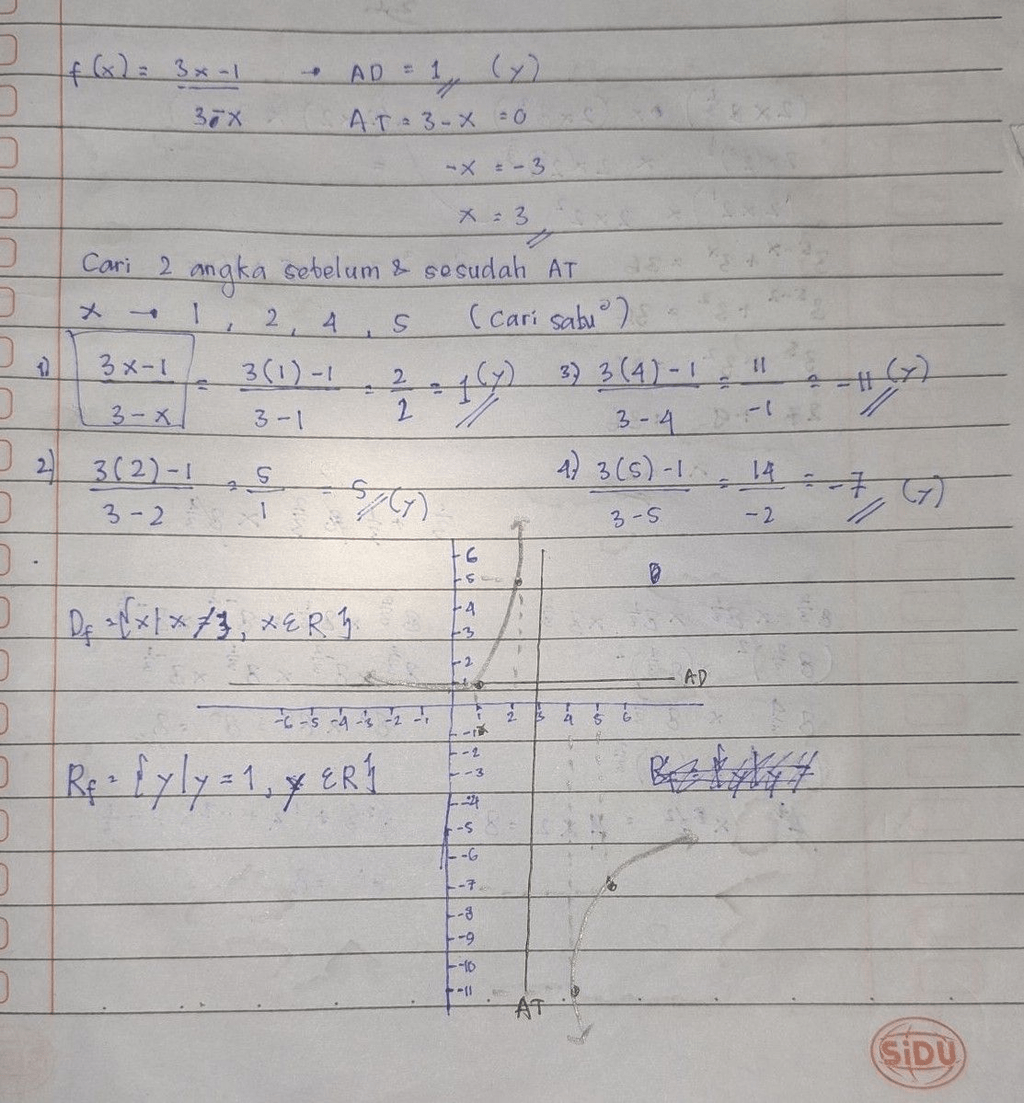 f(x) = 3x-1 → AD = 1 (y)
3-x AT = 3-x = 0
-x = -3
x = 3
Cari 2 angka sebelum & sesudah AT
x → 1, 2, 4, 5 (Cari satu²)
1) 3x-1 = 3(1)-1 = 2 = 1 (y) 3) 3(4)-1 = 11 = -11 (y)
3-x 3-1 2 3-4 -1
2) 3(2)-1 = 5 = 5 (y) 4) 3(5)-1 = 14 = -7 (y)
3-2 1 3-5 -2
6
5
Df = {x | x ≠ 3, x ε R}
4
3
2
1 AD
-6 -5 -4 -3 -2 -1 1 2 3 4 5 6
-1
-2
Rf = {y | y = 1, y ε R}
-3
-4
-5
-6
-7
-8
-9
-10
-11
AT
SiDU